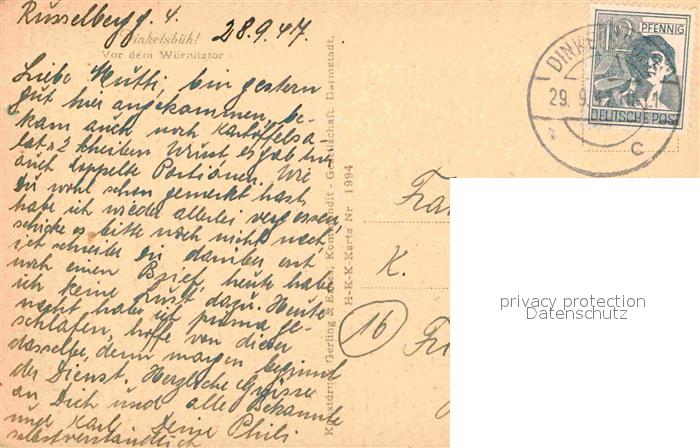 Russelberg g. 4.
28.9.47.
Dinkelsbühl
Vor dem Wörnitztor
Liebe Mutti, bin gestern
gut hier angekommen, be-
kam auch noch Kartoffelsa-
lat + 2 Scheiben Wurst es gab
auch doppelte Portionen. Wie
Du wohl schon gemerkt hast,
habe ich wieder allerlei vergessen,
schicke es bitte noch nicht nach,
ich schreibe Dir darüber erst
noch einen Brief, heute habe
ich keine Lust dazu. Heute
nacht habe ich prima ge-
schlafen, hoffe von dieser
dasselbe, denn morgen beginnt
der Dienst. Herzliche Grüsse
an Dich und alle Bekannte
und Karl Deine Phili
selbstverständlich
Kunstdruck Gerling & Erbes, Kommandit - Gesellschaft, Darmstadt.
H-K-K Karte Nr. 1994
12 PFENNIG
DEUTSCHE POST
DINKE
29.9.47
C
K.
16
privacy protection
Datenschutz